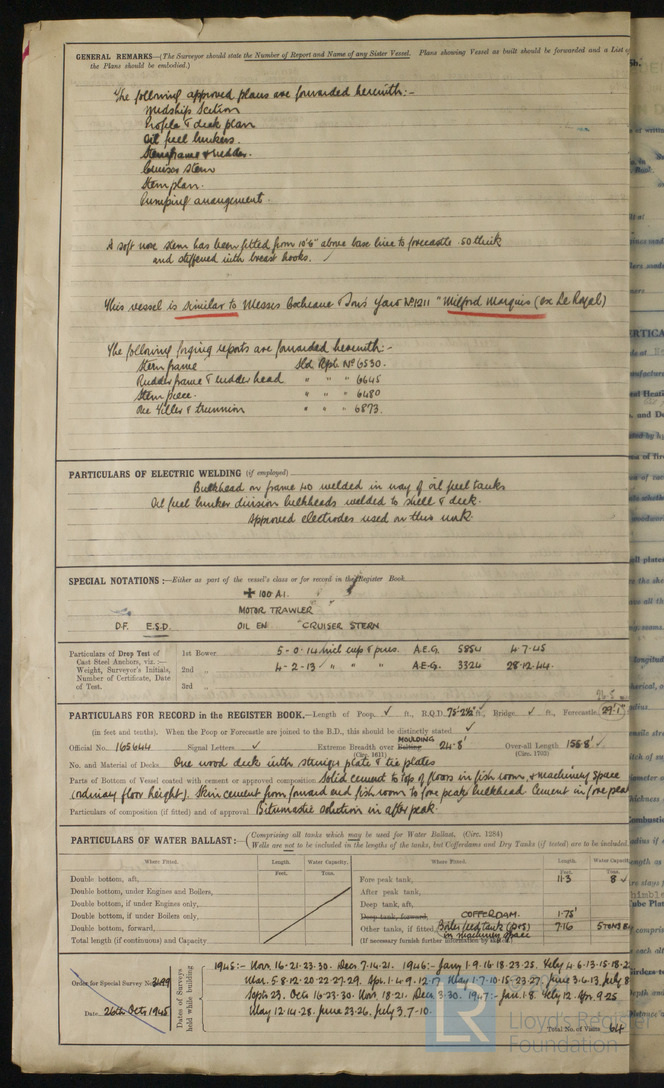 GENERAL REMARKS—(The Surveyor should state the Number of Report and Name of any Sister Vessel. Plans showing Vessel as built should be forwarded and a List
the Plans should be embodied.)
The following approved plans are forwarded herewith:-
Midship Section
Profile & deck plan
Oil fuel bunkers.
Sternframe & rudder.
Cruiser stern
Stem plan.
Pumping arrangement.
A soft nose stem has been fitted from 10'6" above base line to forecastle .50 thick
and stiffened with breast hooks.
This vessel is similar to Messrs Cochrane & Sons Yard No 1211 "Milford Marquis (ex Le Royal)
The following forging reports are forwarded herewith:-
Stern frame Sld Rpt No 6530.
Rudder frame & rudder head " " " 6645
Stem piece. " " " 6480
One tiller & trunnion " " " 6873.
PARTICULARS OF ELECTRIC WELDING (if employed)
Bulkhead on frame 40 welded in way of oil fuel tanks
Oil fuel bunker division bulkheads welded to shell & deck.
Approved electrodes used on this work.
SPECIAL NOTATIONS:—Either as part of the vessel's class or for record in the Register Book
✠ 100 A1.
MOTOR TRAWLER
D.F. E.S.D. OIL EN CRUISER STERN
Particulars of Drop Test of
Cast Steel Anchors, viz.:—
Weight, Surveyor's Initials,
Number of Certificate, Date
of Test.
1st Bower 5-0-14 incl cups & pins. A.E.G. 5854 4.7.45
2nd " 4-2-13 " " " A.E.G. 3324 28.12.44.
3rd "
PARTICULARS FOR RECORD in the REGISTER BOOK.—Length of Poop ✓ ft., R.Q.D. 75'2½" ft., Bridge ✓ ft., Forecastle 29'1"
(in feet and tenths). When the Poop or Forecastle are joined to the B.D., this should be distinctly stated ✓
Official No. 165644 Signal Letters ✓ Extreme Breadth over MOULDING Belting (Circ. 1611) 24.8' Over-all Length (Circ. 1703) 155.8' ✓
No. and Material of Decks One wood deck with stringer plate & tie plates
Parts of Bottom of Vessel coated with cement or approved composition Solid cement to top of floors in fish room, & machinery space
(ordinary floor height). Skin cement from forward end fish room to fore peak bulkhead. Cement in fore peak
Particulars of composition (if fitted) and of approval. Bitumastic solution in after peak.
PARTICULARS OF WATER BALLAST:— (Comprising all tanks which may be used for Water Ballast. (Circ. 1284)
Wells are not to be included in the lengths of the tanks, but Cofferdams and Dry Tanks (if tested) are to be included.
Where Fitted. Length. Water Capacity. Where Fitted. Length. Water Capacity
Feet. Tons. Feet. Tons.
Double bottom, aft, Fore peak tank, 11.3 8 ✓
Double bottom, under Engines and Boilers, After peak tank,
Double bottom, if under Engines only, Deep tank, aft,
Double bottom, if under Boilers only, Deep tank, forward, COFFERDAM. 1.75'
Double bottom, forward, Other tanks, if fitted, Boiler feed tank (pors) in machinery space 7.16 5 TONS
Total length (continuous) and Capacity (If necessary furnish further information by
Order for Special Survey No. 3499
Date 26th Oct 1945
Dates of Surveys held while building
1945:- Nov. 16-21-23-30. Dec 7-14-21. 1946:- Jany 1-9-16-18-23-25. Feby 4-6-13-15-18-2
Mar. 5-8-12-20-22-27-29. Apr. 1-4-9-12-17 May 1-7-10-15-23-27. June 3-6-13. July 8
Septr 23. Octr 16-23-30. Nov. 18-21. Dec. 3-30. 1947:- Jan. 1-8. Feby 12. Apr. 9-25
May 12-14-28. June 23-26. July 3-7-10.
Total No. of Visits 64
LR
Lloyd's Register
Foundation